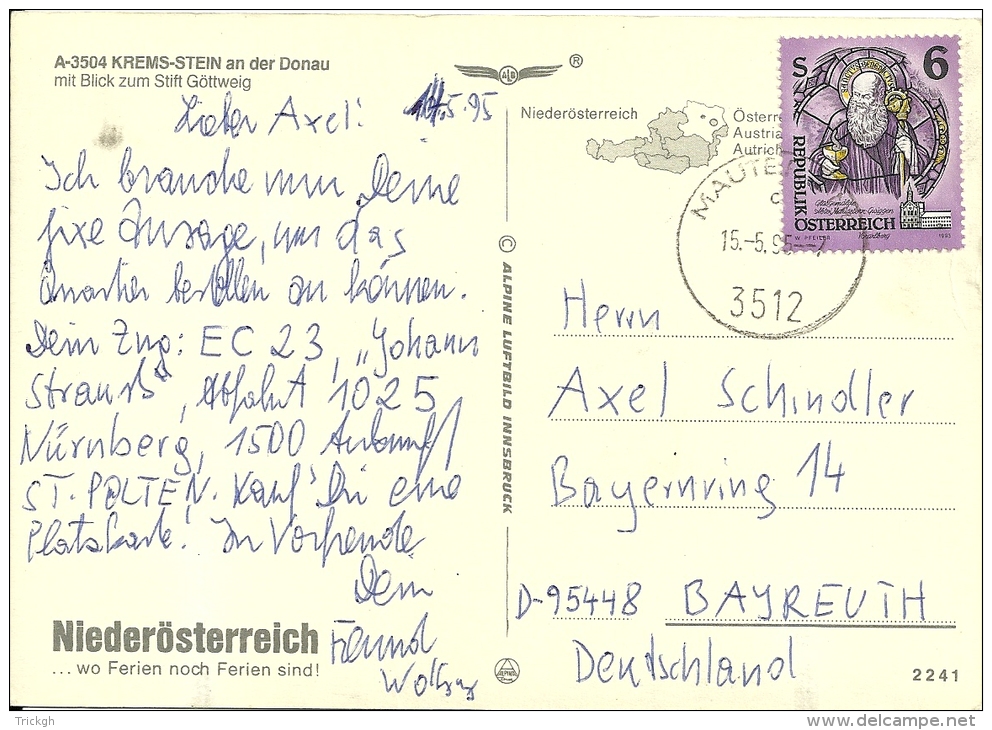 A-3504 KREMS-STEIN an der Donau
mit Blick zum Stift Göttweig
.5.95
Lieber Axel!
Ich brauche nun Deine
fixe Zusage, um das
Quartier bestellen zu können.
Dein Zug: EC 23, „Johann
Strauß“, Abfahrt 1025
Nürnberg, 1500 Ankunft
ST. PÖLTEN. Kauf' Dir eine
Platzkarte! In Vorfreude
Dein
Freund
Wolfgang
Niederösterreich
...wo Ferien noch Ferien sind!
ALB
®
Niederösterreich
Österre
Austria
Autrich
© ALPINE LUFTBILD INNSBRUCK
S 6
REPUBLIK
ÖSTERREICH
W. PFEILER
1993
MAUTE
15.-5.95
3512
Herrn
Axel Schindler
Bayernring 14
D-95448 BAYREUTH
Deutschland
2241
Trickgh
www.delcampe.net